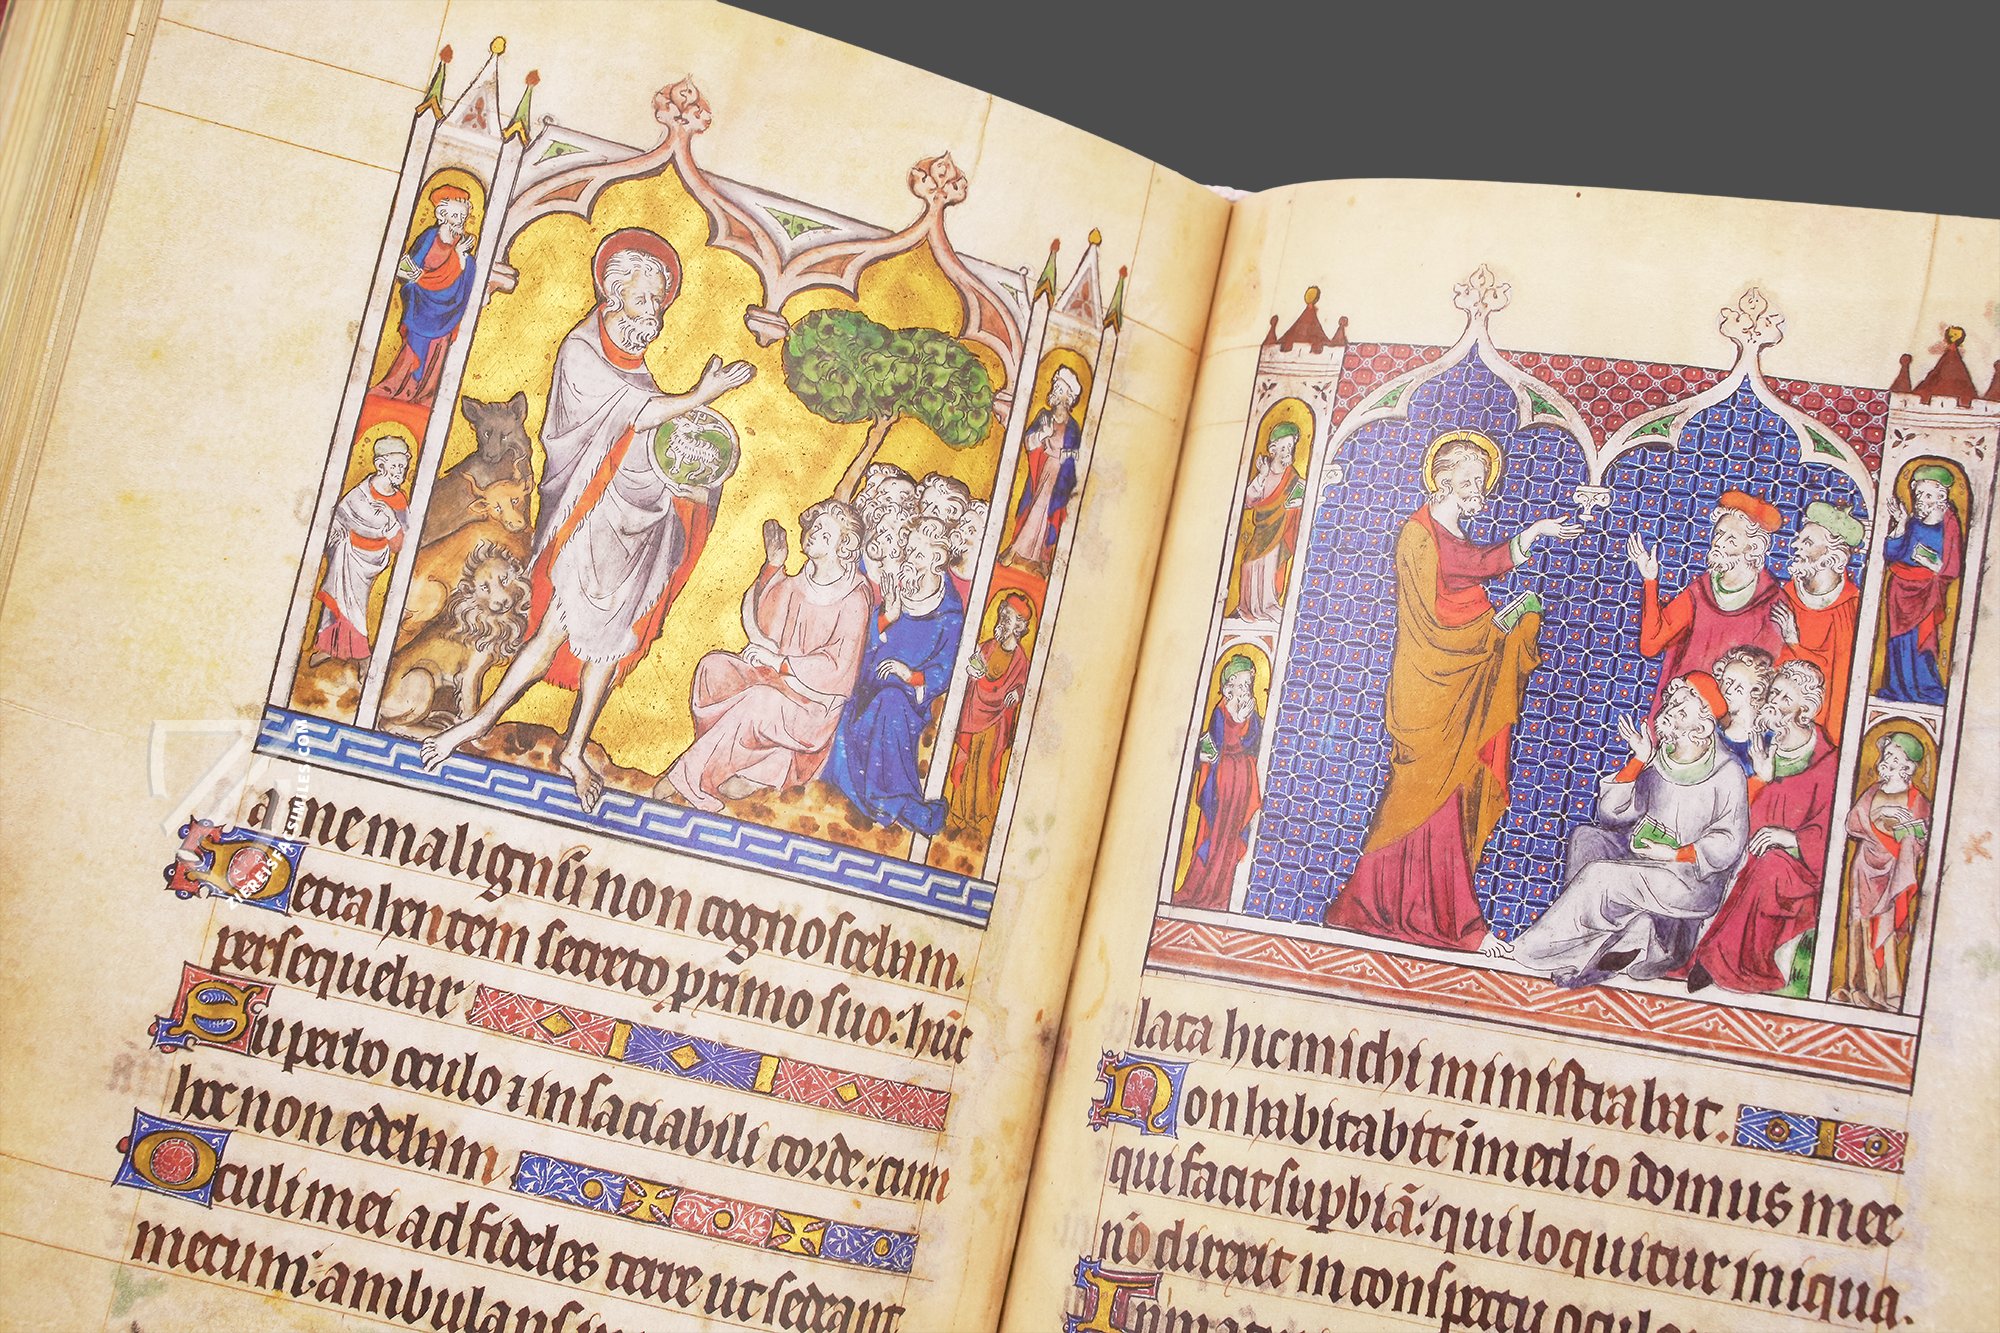 a me malignū non cognoscebam.
Detrahentem secreto primo suo: hūc
persequebar
Superbo oculo ⁊ insaciabili corde: cum
hoc non edebam
Oculi mei ad fideles terre ut sedeant
mecum: ambulans in
lata hic michi ministrabat.
Non habitabit ī medio domus mee
qui facit supbiā: qui loquitur iniqua.
nō direxit in conspectu oculo
In ma
ZIEREISFACSIMILES.COM